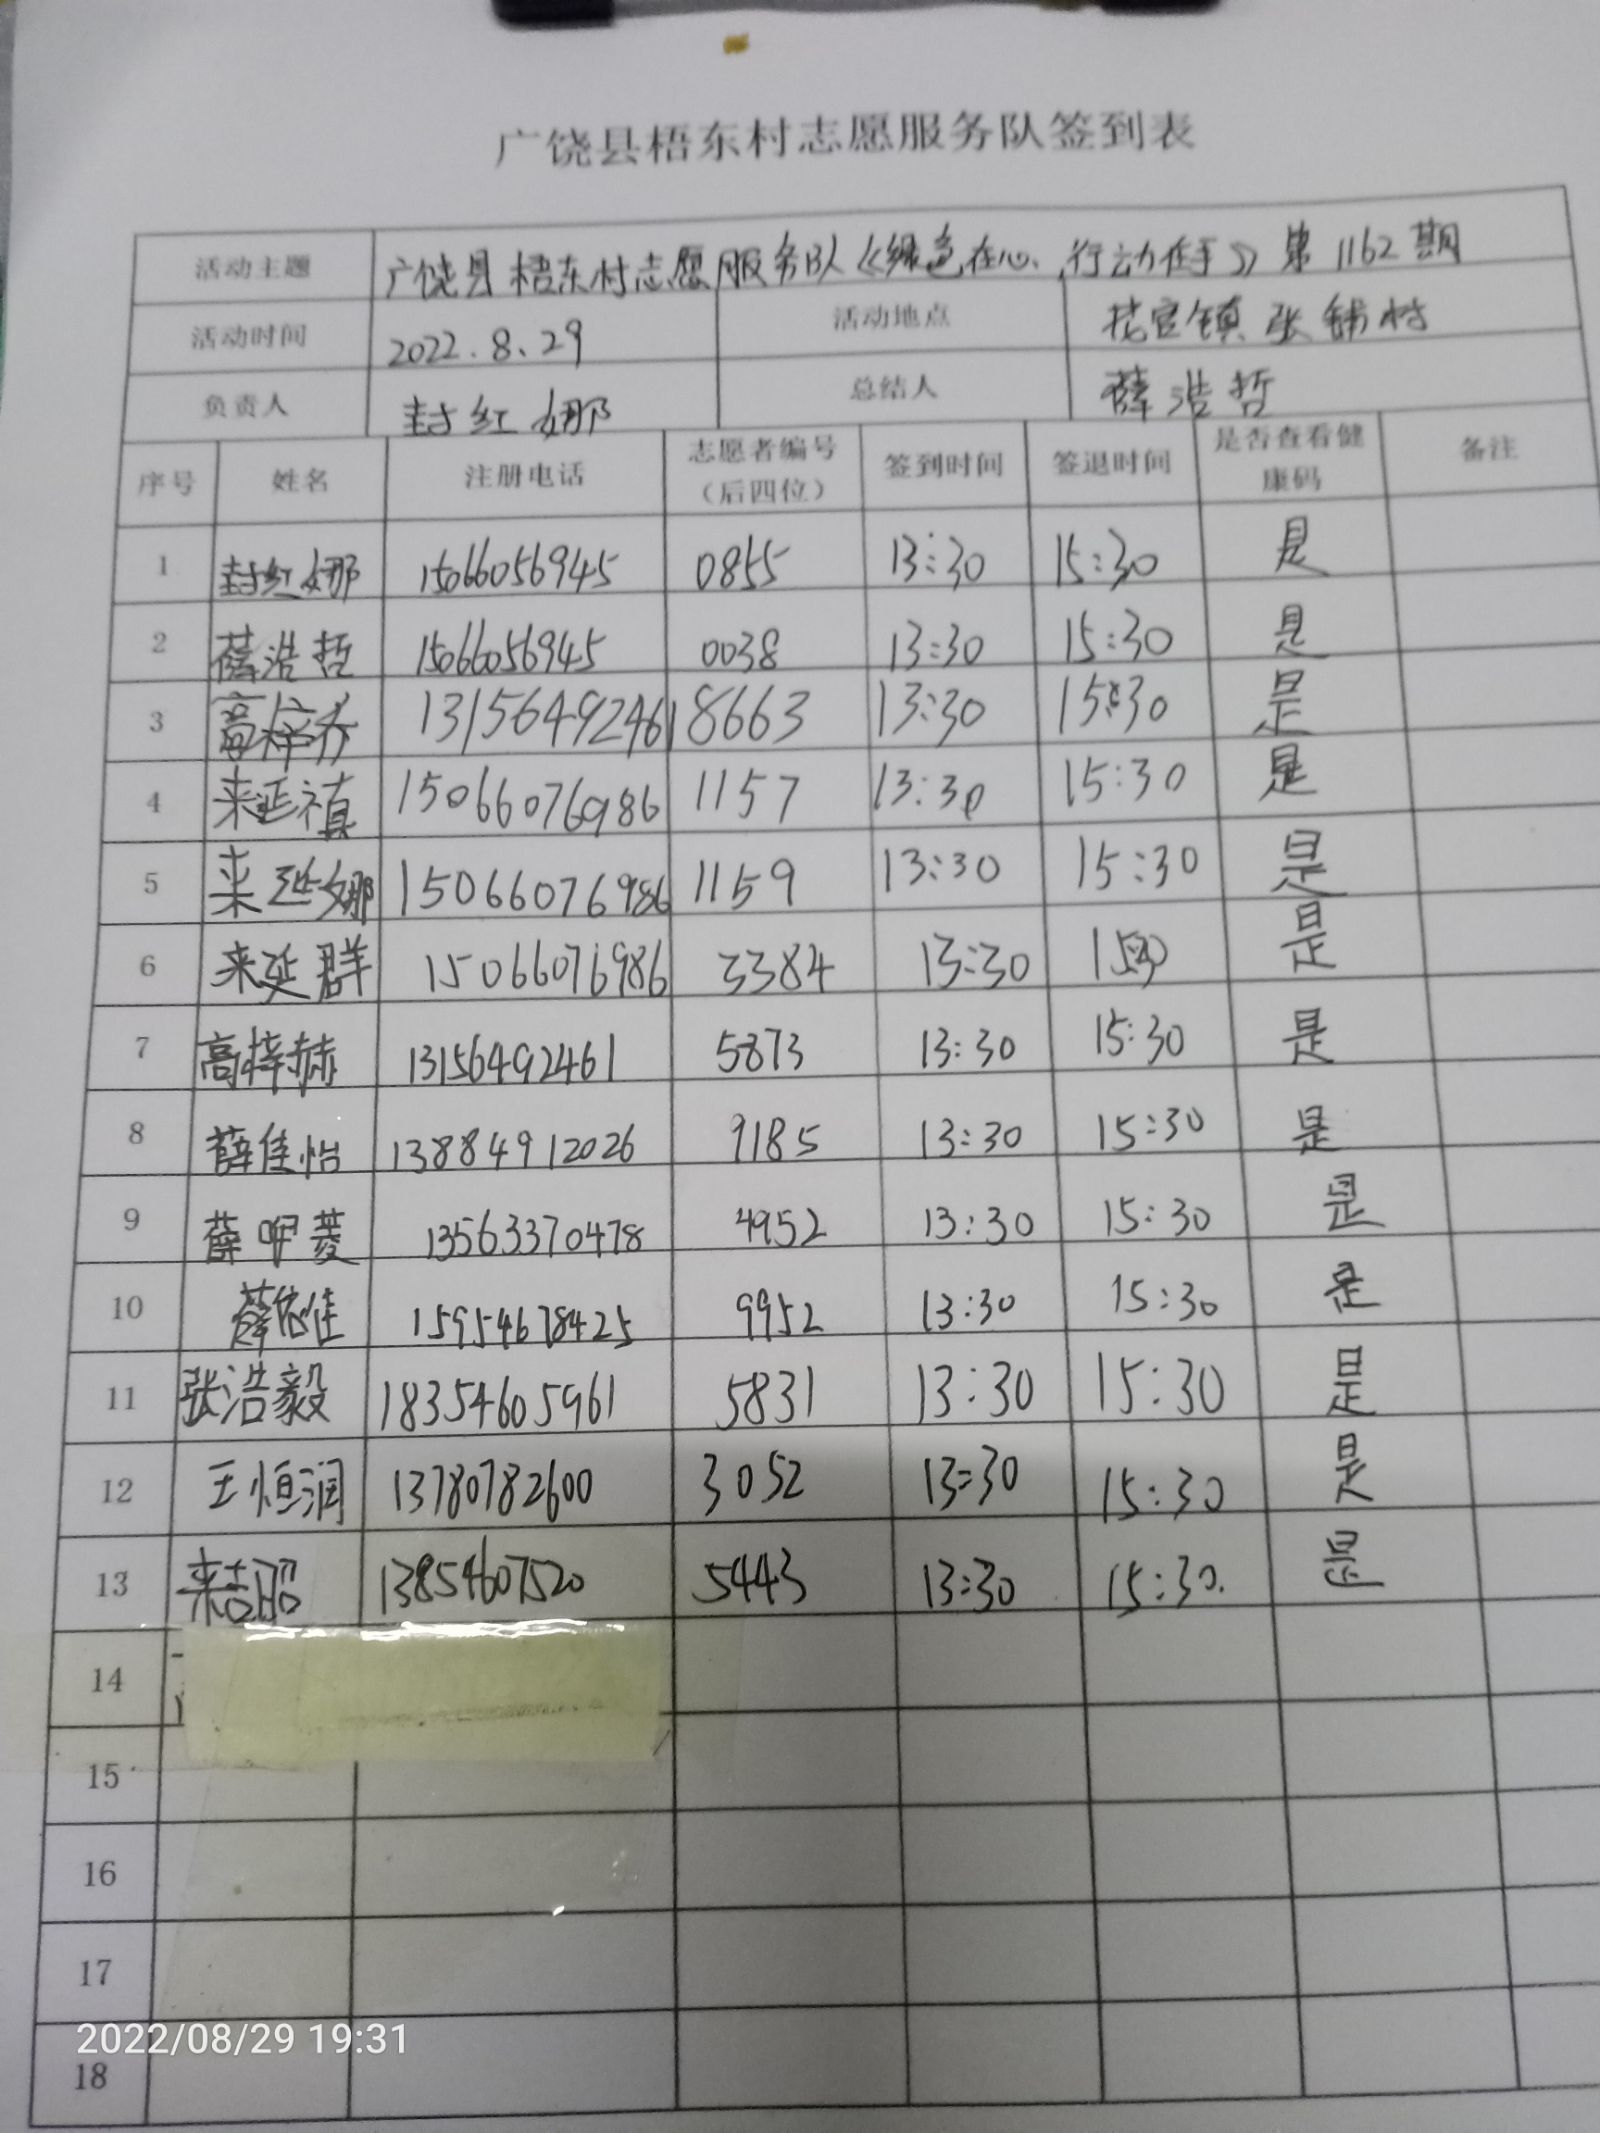 广饶县梧东村志愿服务队签到表
活动主题 广饶县梧东村志愿服务队《绿色在心、行动在手》第1162期
活动时间 2022.8.29 活动地点 官镇张 村
负责人 封红娜 总结人 薛浩哲
序号 姓名 注册电话 志愿者编号（后四位） 签到时间 签退时间 是否查看健康码 备注
1 封红娜 15066056945 0855 13:30 15:30 是
2 薛浩哲 15066056945 0038 13:30 15:30 是
3 高梓乔 13156492461 8663 13:30 15:30 是
4 来延禛 15066076986 1157 13:30 15:30 是
5 来延娜 15066076986 1159 13:30 15:30 是
6 来延群 15066076986 3384 13:30 15:30 是
7 高梓赫 13156492461 5873 13:30 15:30 是
8 薛佳怡 13884912026 9185 13:30 15:30 是
9 薛 菱 13563370478 4952 13:30 15:30 是
10 薛依佳 15954678425 9952 13:30 15:30 是
11 张浩毅 18354605961 5831 13:30 15:30 是
12 王恒润 13780782600 3052 13:30 15:30 是
13 来吉昭 13854607520 5443 13:30 15:30. 是
14
15
16
17
18
2022/08/29 19:31